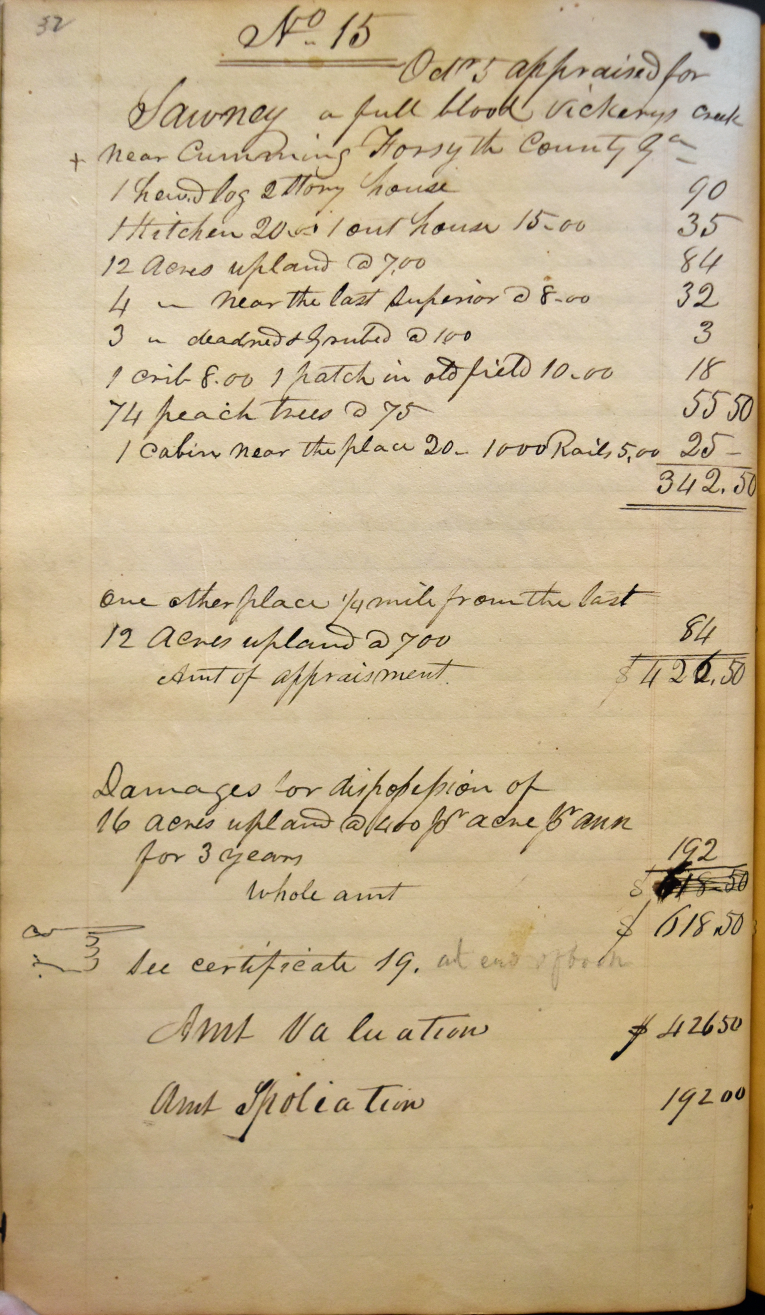 32
No 15
Octr 5 appraised for
Sawney a full blood Vickerys creek
+ near Cumming Forsyth County Ga
1 hewd log 2 Story house 90
1 Kitchen 20.00 1 out house 15.00 35
12 Acres upland @ 7,00 84
4 " near the last Superior @ 8.00 32
3 " deadned & Grubed @ 100 3
1 crib 8.00 1 patch in old field 10.00 18
74 peach trees @ 75 55 50
1 Cabin near the place 20- 1000 Rails 5,00 25-
342.50
one other place 1/4 mile from the last
12 Acres upland @ 700 84
Amt of appraisment $426.50
Damages for dispossession of
16 acres upland @ 400 pr acre pr ann
for 3 years 192
Whole amt $ 618.50
$ 618.50
See certificate 19. at end of book
Amt Valuation $ 426 50
Amt Spoliation 192 00